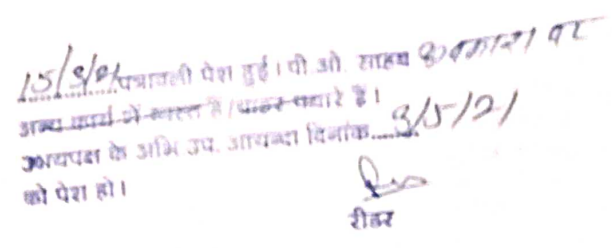 15/3/21 पत्रावली पेश हुई। पी.ओ. साहब अवकाश पर
अन्य कार्य में व्यस्त है/बाहर पधारे है।
उभयपक्ष के अभि उप. आयन्दा दिनांक......3/5/21
को पेश हो।
रीडर